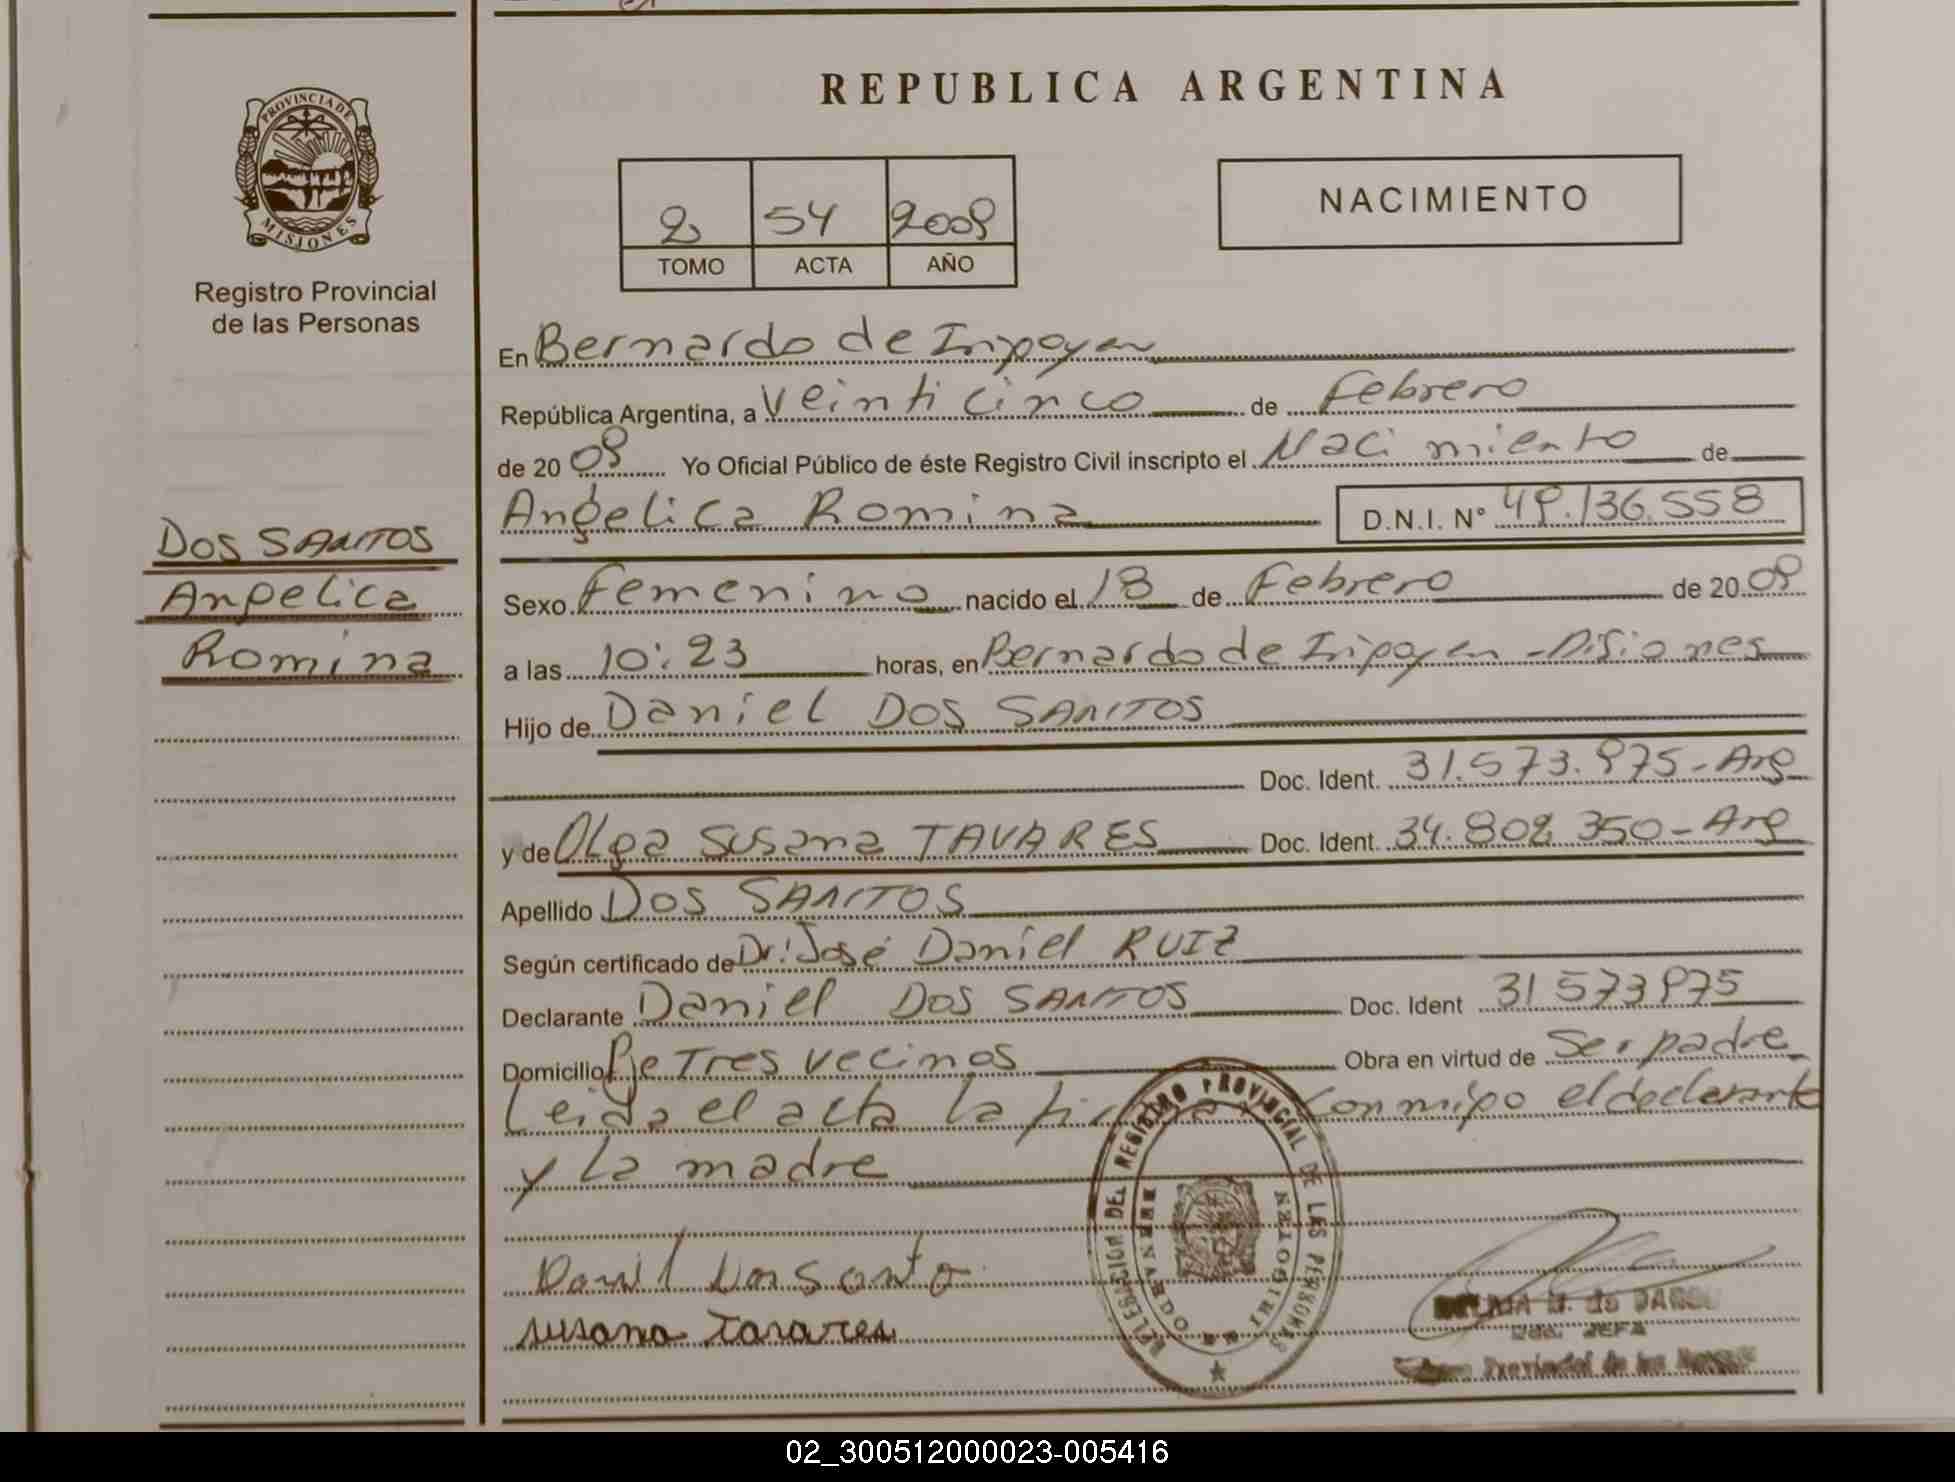 REPUBLICA ARGENTINA
PROVINCIA DE
MISIONES
Registro Provincial
de las Personas
2 54 2009
TOMO ACTA AÑO
NACIMIENTO
En Bernardo de Irigoyen
República Argentina, a Veinticinco de Febrero
de 20 09 Yo Oficial Público de éste Registro Civil inscripto el Nacimiento de
Angelica Romina D.N.I. N° 49.136.558
DOS SANTOS
Angelica
Romina
Sexo Femenino nacido el 18 de Febrero de 20 09
a las 10:23 horas, en Bernardo de Irigoyen - Misiones
Hijo de Daniel DOS SANTOS
Doc. Ident. 31.573.975 - Arg
y de Olga Susana TAVARES Doc. Ident. 34.802.350 - Arg
Apellido DOS SANTOS
Según certificado de Dr: José Daniel RUIZ
Declarante Daniel DOS SANTOS Doc. Ident 31573975
Domicilio Pje Tres Vecinos Obra en virtud de Ser padre
Leida el acta la firma conmigo el declarante
y la madre
DELEGACION DEL REGISTRO PROVINCIAL DE LAS PERSONAS
BERNARDO DE IRIGOYEN
Danil Dos Santo
Susana Tavares
JEFA
Provincial de las
02_300512000023-005416